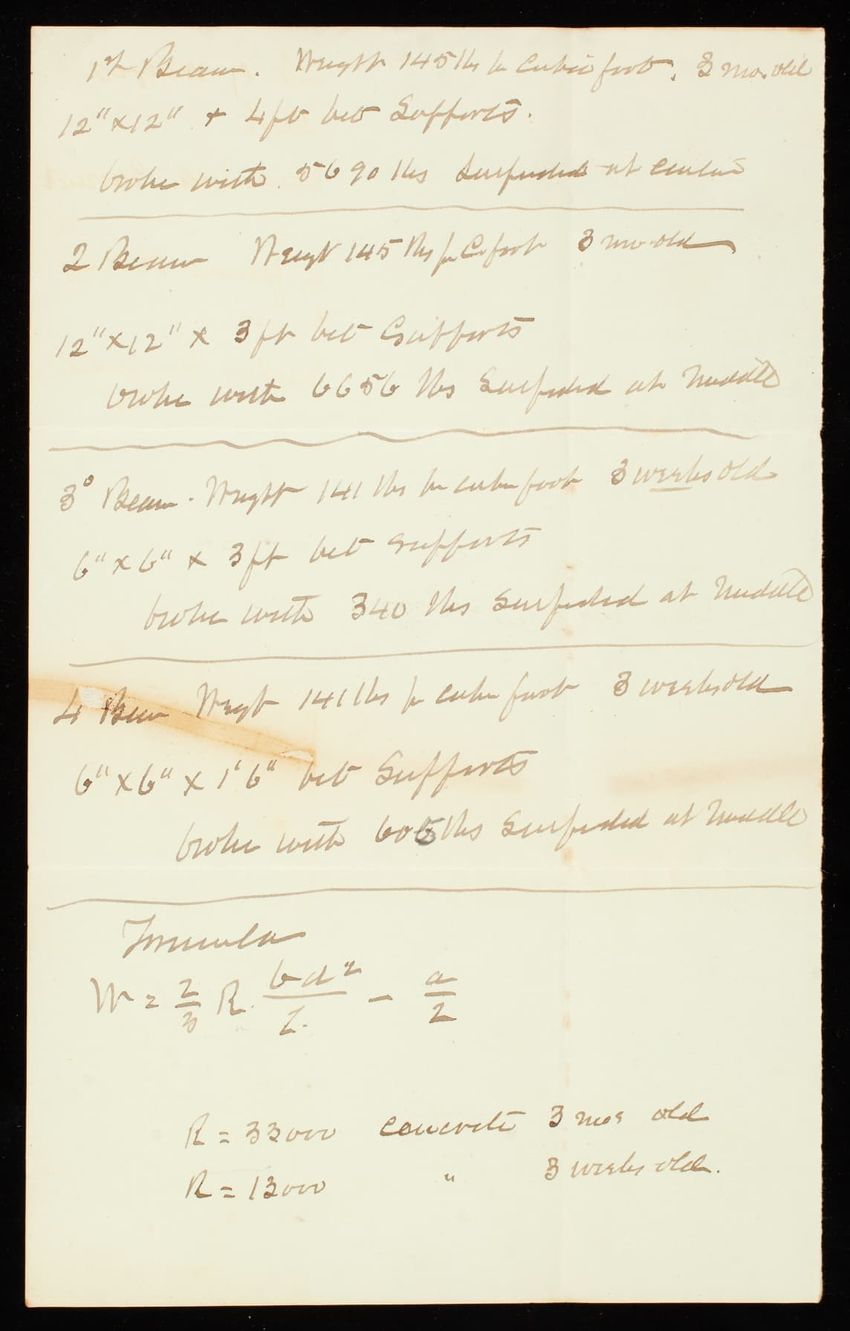 1st Beam. Weight 145 lbs pr Cubic foot, 3 mos. old
12" x 12" + 4 ft bet Supports.
broke with 5690 lbs Suspended at center
2 Beam Weight 145 lbs pr C. foot 3 mo old
12" x 12" x 3 ft bet Supports
broke with 6656 lbs Suspended at Middle
3° Beam. Weight 141 lbs pr cube foot 3 weeks old
6" x 6" x 3 ft bet supports
broke with 340 lbs Suspended at Middle
4 Beam Weight 141 lbs pr cube foot 3 weeks old
6" x 6" x 1' 6" bet Supports
broke with 606 lbs Suspended at Middle
Formula
W = 2/3 R. bd²/l. - a/2
R = 33000 concrete 3 mos old
R = 13000 " 3 weeks old.